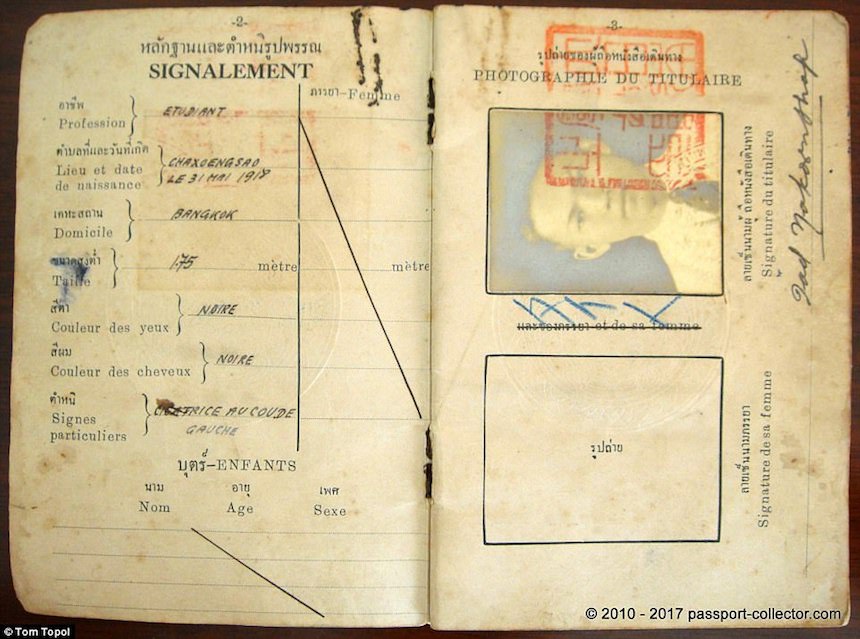 -2-
หลักฐานและตำหนิรูปพรรณ
SIGNALEMENT
ภรรยา-Femme
อาชีพ
Profession
ETUDIANT
ตำบลที่และวันที่เกิด
Lieu et date
de naissance
CHAXOENGSAO
LE 31 MAI 1918
เคหะสถาน
Domicile
BANGKOK
ขนาดสูงต่ำ
Taille
1.75
mètre
mètre
สีตา
Couleur des yeux
NOIRE
สีผม
Couleur des cheveux
NOIRE
ตำหนิ
Signes
particuliers
CICATRICE AU COUDE
GAUCHE
บุตร์-ENFANTS
นาม อายุ เพศ
Nom Age Sexe
-3-
รูปถ่ายของผู้ถือหนังสือเดินทาง
PHOTOGRAPHIE DU TITULAIRE
ลายเซ็นนามผู้ถือหนังสือเดินทาง
Signature du titulaire
และของภรรยา et de sa femme
รูปถ่าย
ลายเซ็นนามภรรยา
Signature de sa femme
© Tom Topol
© 2010 - 2017 passport-collector.com